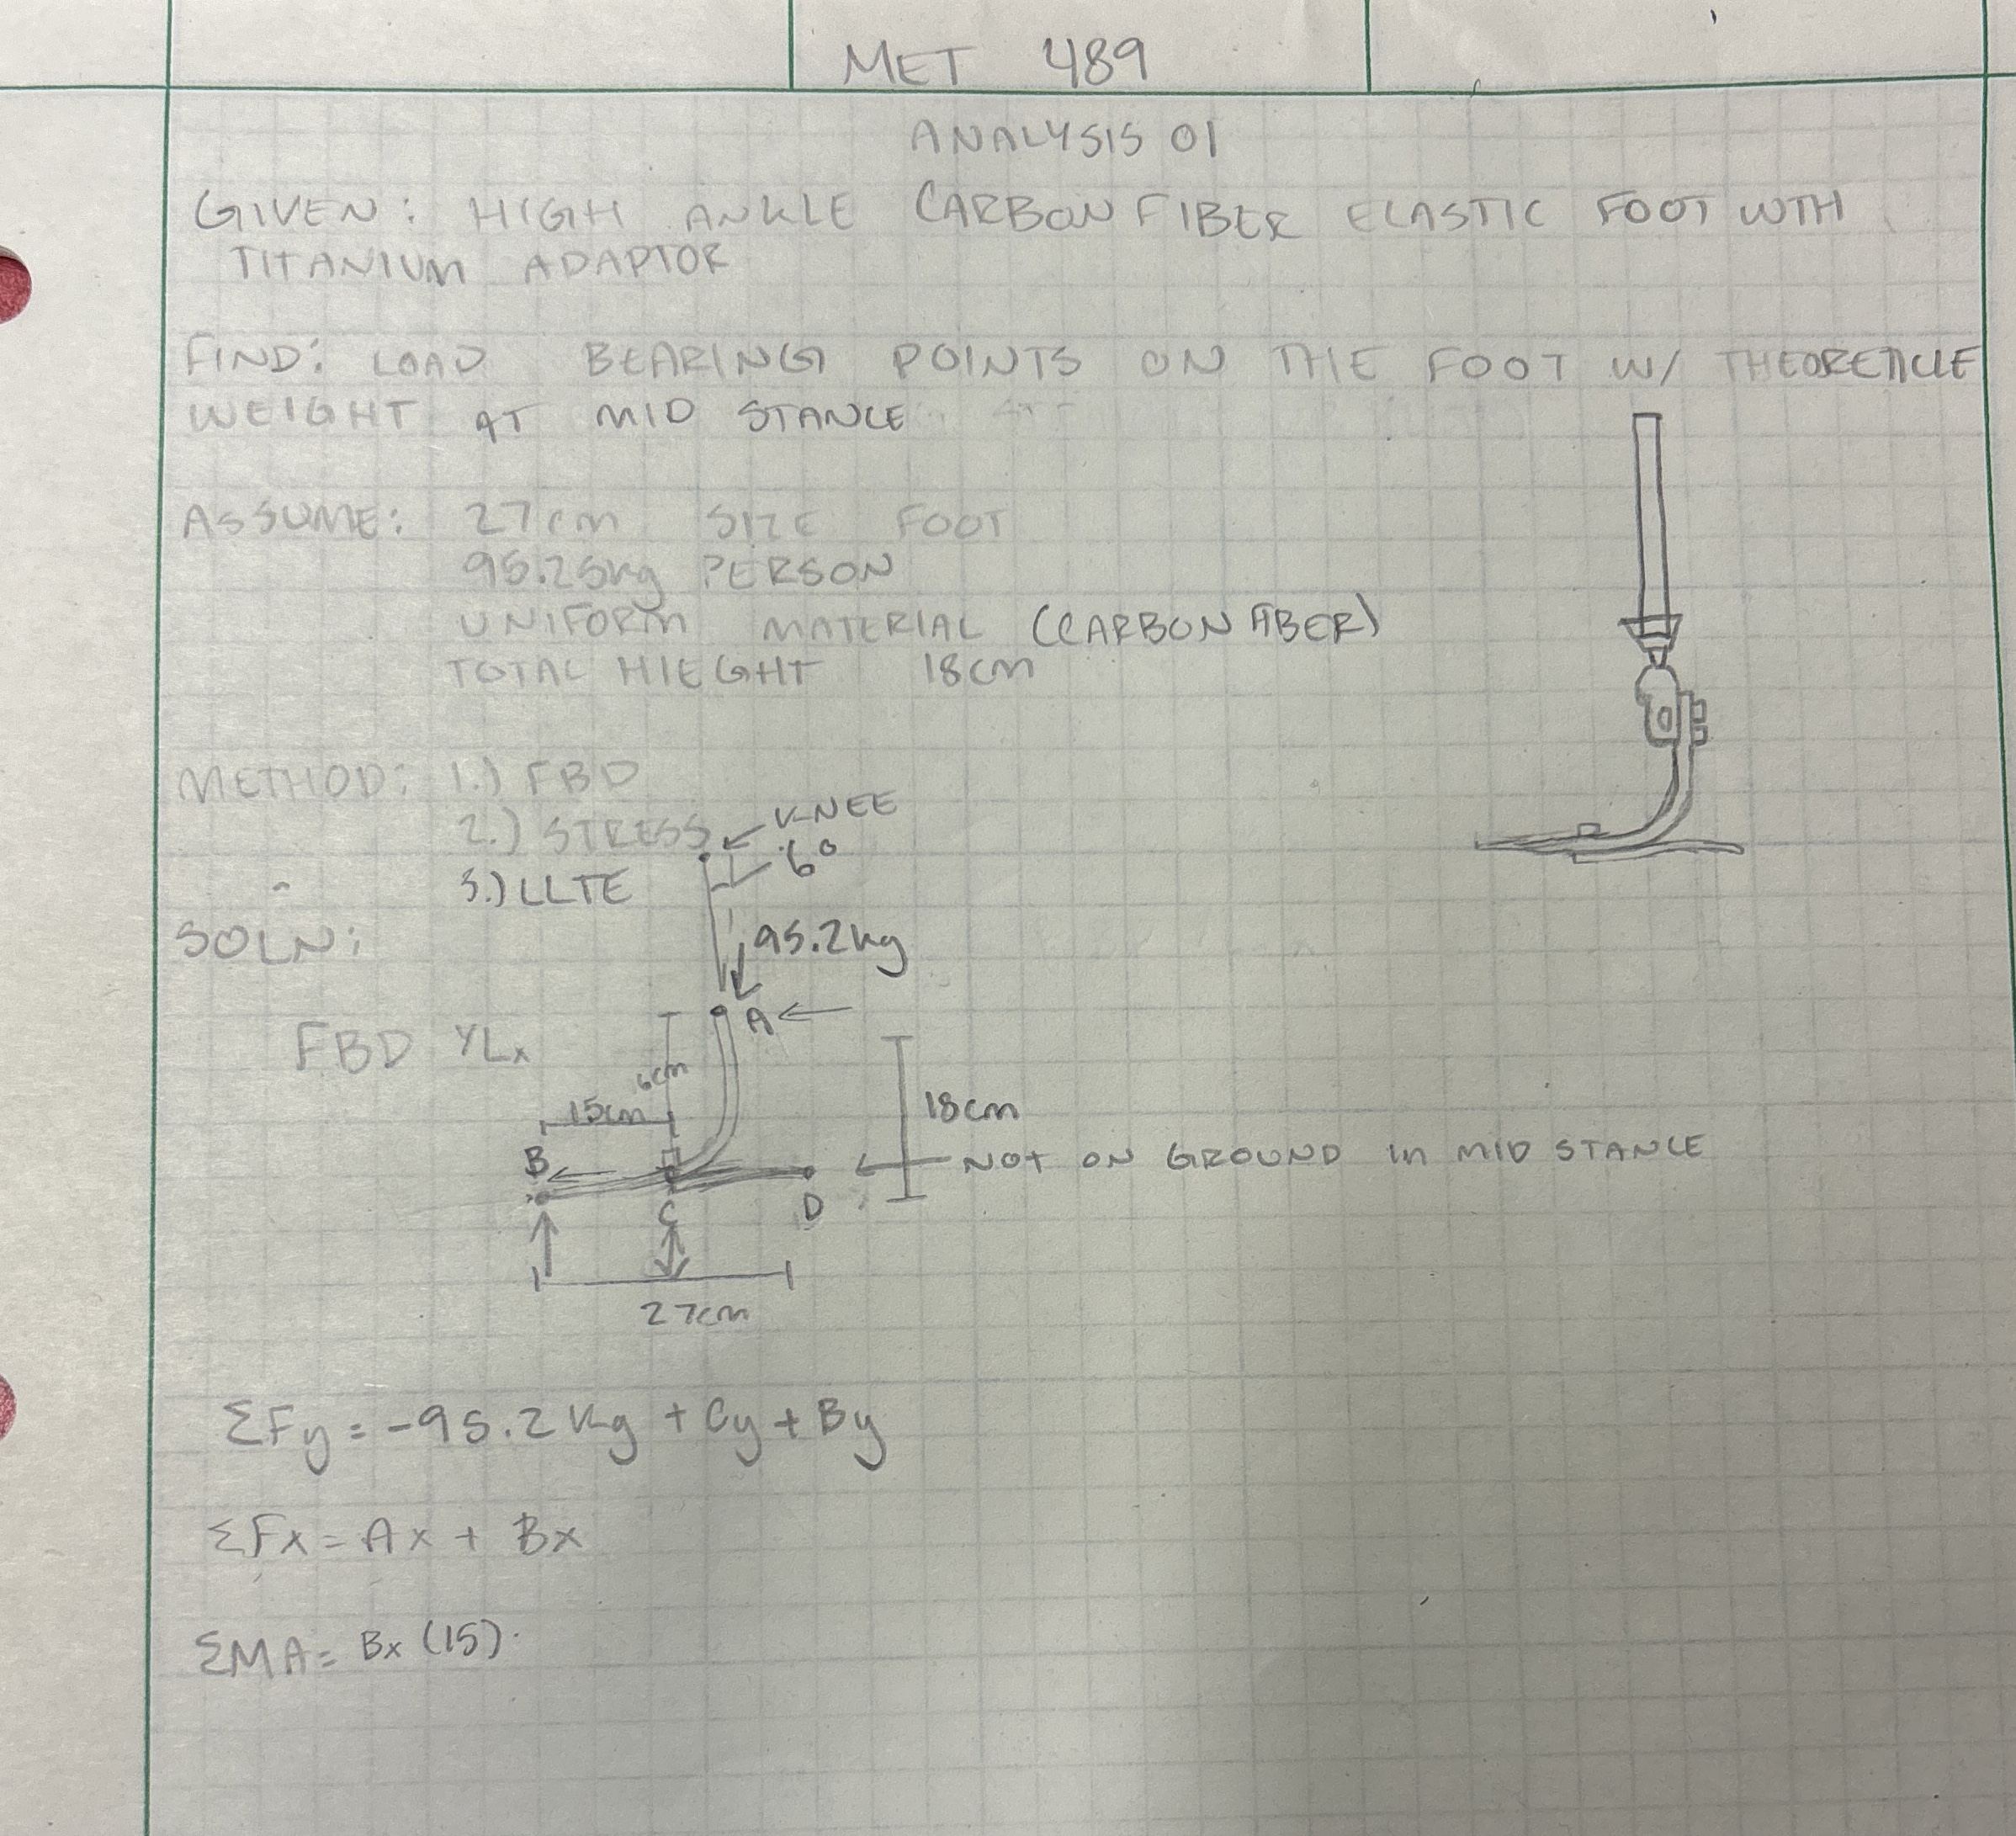 MET 489
ANALYSIS 01
GIVEN: HIGH ANKLE CARBON FIBER ELASTIC FOOT WTH
TITANIUM ADAPTOR
FIND: LOAD BEARING POINTS ON THE FOOT W/ THEORETICLE
WEIGHT AT MID STANCE
ASSUME: 27cm SIZE FOOT
95.25kg PERSON
UNIFORM MATERIAL (CARBON FIBER)
TOTAL HIEGHT 18cm
METHOD: 1.) FBD
2.) STRESS
3.) LLTE
KNEE
6°
SOLN:
95.2kg
A
FBD Y x
6cm
15cm
18cm
B
NOT ON GROUND in MID STANCE
C
D
27cm
ΣFy = -95.2kg + Cy + By
ΣFx = Ax + Bx
ΣMA = Bx (15)